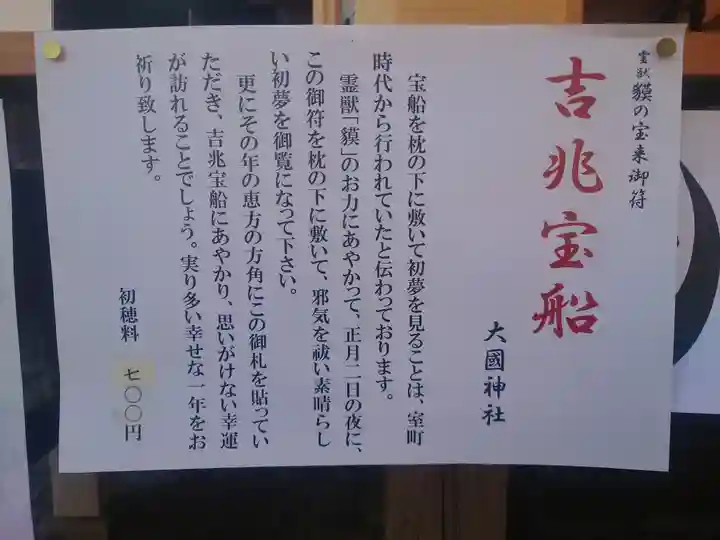 霊獣 貘の宝来御符
吉兆宝船
大國神社
宝船を枕の下に敷いて初夢を見ることは、室町
時代から行われていたと伝わっております。
霊獣「貘」のお力にあやかって、正月二日の夜に、
この御符を枕の下に敷いて、邪気を祓い素晴らし
い初夢を御覧になって下さい。
更にその年の恵方の方角にこの御札を貼ってい
ただき、吉兆宝船にあやかり、思いがけない幸運
が訪れることでしょう。実り多い幸せな一年をお
祈り致します。
初穂料 七〇〇円